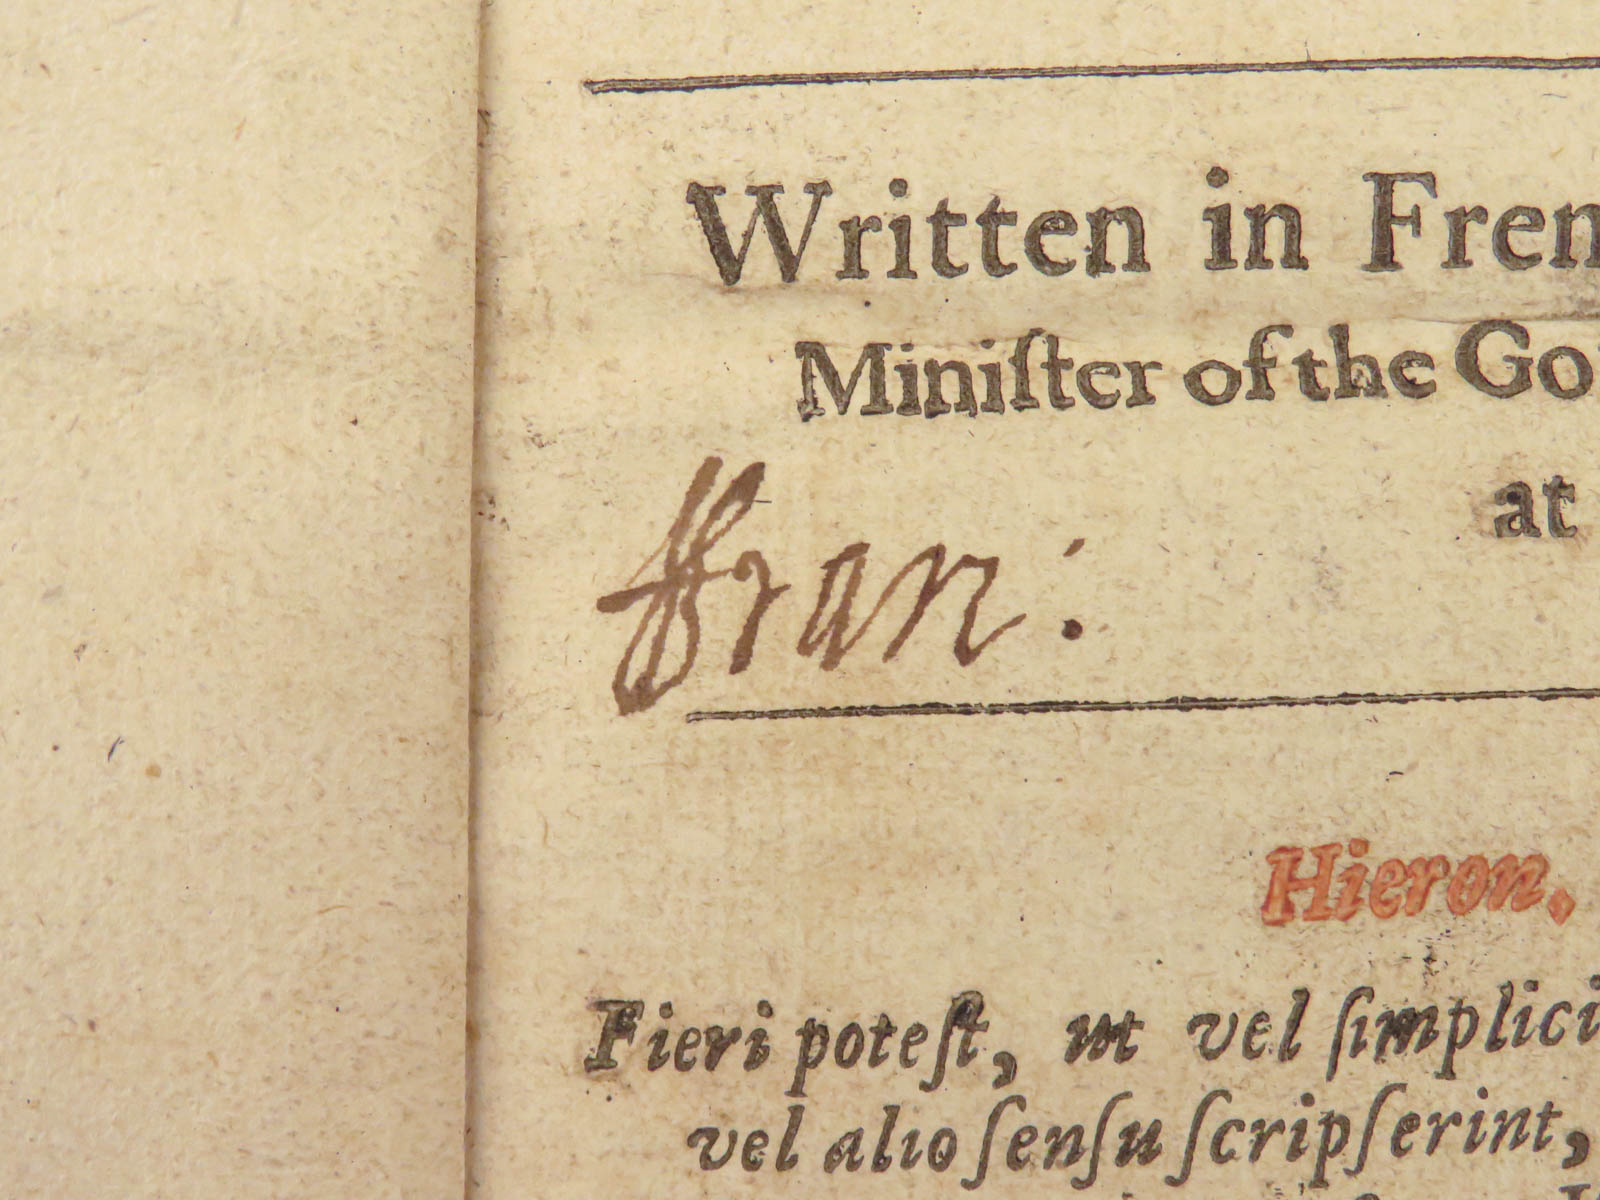 Written in Fren
Miniſter of the Go
at
ffran:
Hieron.
Fieri poteſt, ut vel ſimplici
vel alio ſenſu ſcripſerint,